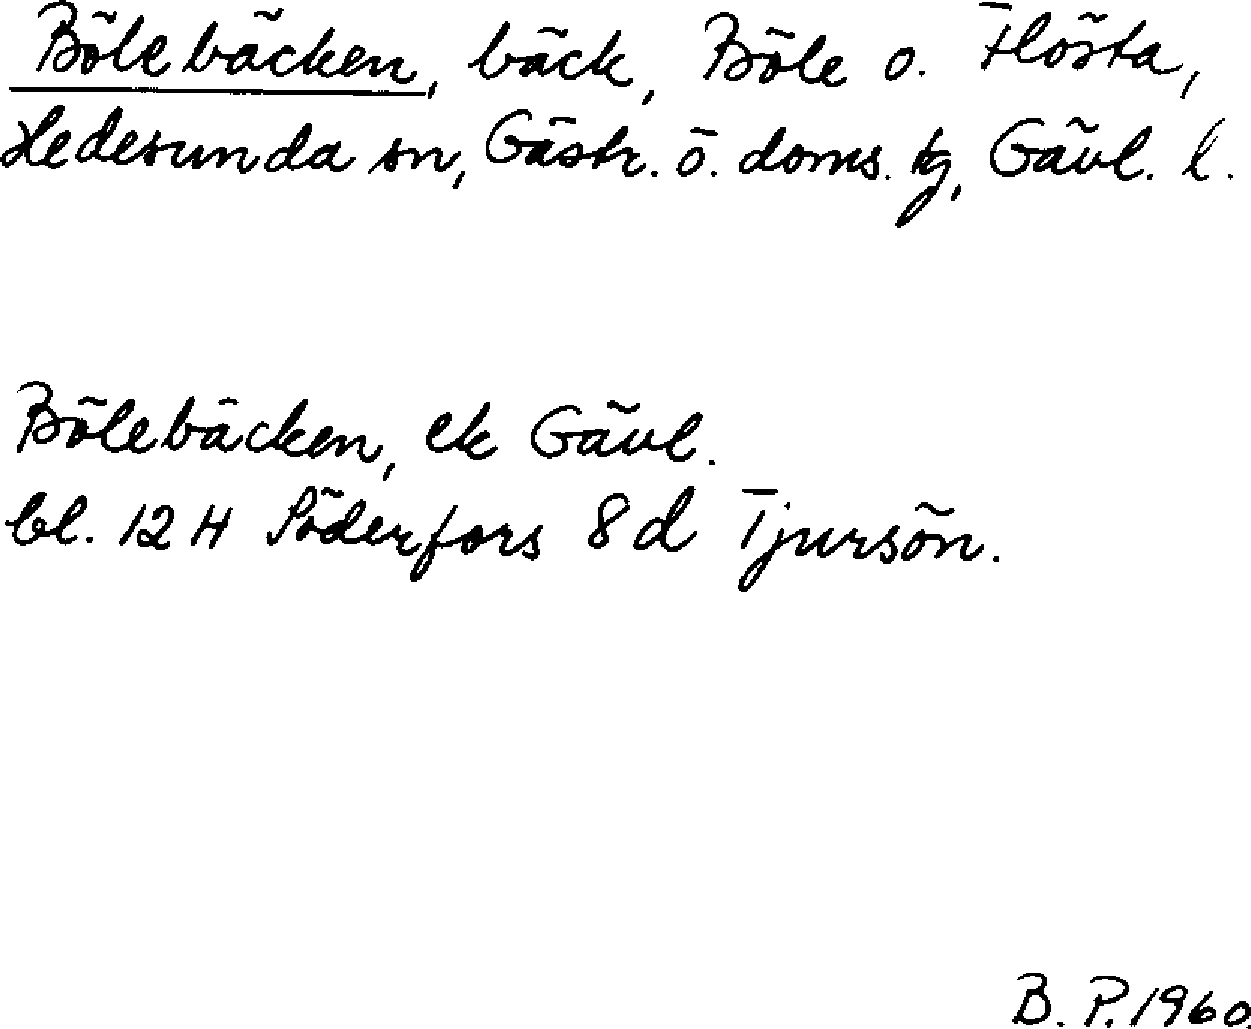 Bölebäcken, bäck, Böle o. Flösta,
Hedesunda sn, Gästr. ö. doms. tg, Gävl. l.
Bölebäcken, ek Gävl.
bl. 12 H Söderfors 8 d Tjursön.
B. P. 1960